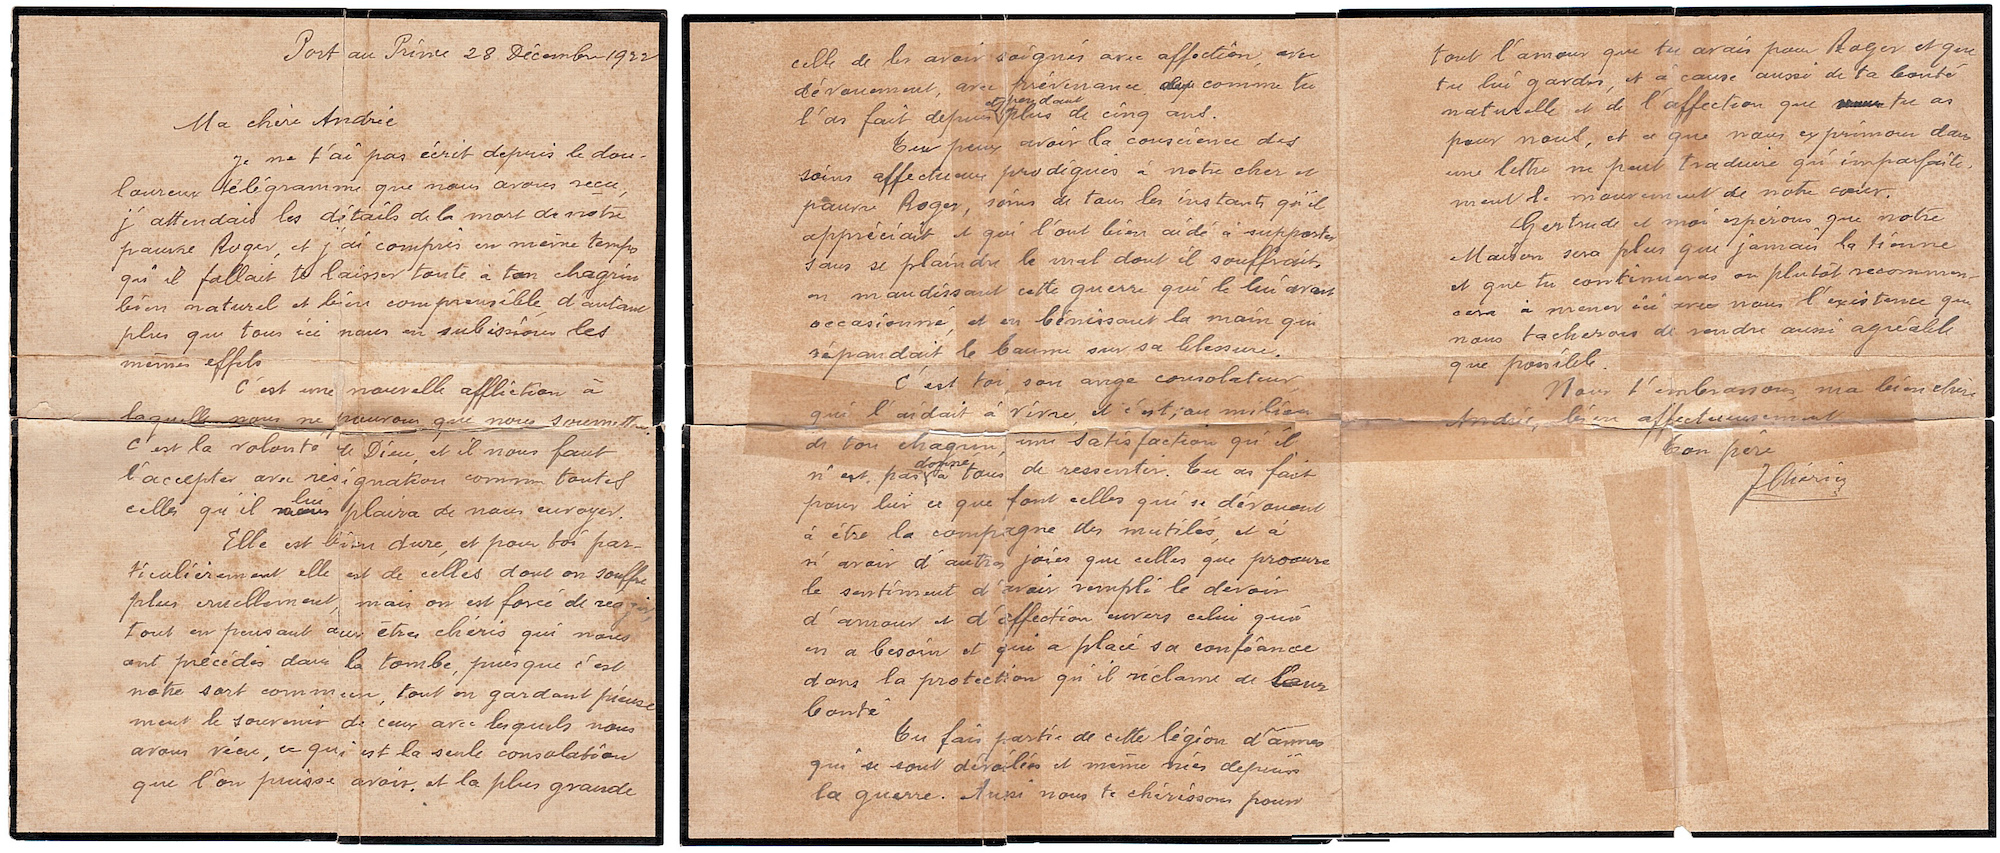 Port au Prince 28 Décembre 1922
Ma chère Andrée
Je ne t'ai pas écrit depuis le dou-
loureux télégramme que nous avons reçu,
j'attendais les détails de la mort de notre
pauvre Roger, et j'ai compris en même temps
qu'il fallait te laisser toute à ton chagrin
bien naturel et bien compréhensible d'autant
plus que tous ici nous en subissions les
mêmes effets
C'est une nouvelle affliction à
laquelle nous ne pouvons que nous soumettre.
C'est la volonté de Dieu, et il nous faut
l'accepter avec résignation comme toutes
celles qu'il lui plaira de nous envoyer.
Elle est bien dure, et pour toi par-
ticulièrement elle est de celles dont on souffre
plus cruellement, mais on est forcé de réagir,
tout en pensant aux êtres chéris qui nous
ont précédés dans la tombe, puisque c'est
notre sort commun, tout en gardant pieuse
ment le souvenir de ceux avec lesquels nous
avons vécu, ce qui est la seule consolation
que l'on puisse avoir. et la plus grande
celle de les avoir soignés avec affection, avec
dévouement, avec prévenance comme tu
l'as fait depuis et pendant plus de cinq ans.
Tu peux avoir la conscience des
soins affectueux prodigués à notre cher et
pauvre Roger, soins de tous les instants qu'il
appréciait et qui l'ont bien aidé à supporter
sans se plaindre le mal dont il souffrait
en maudissant cette guerre qui le lui avait
occasionné, et en bénissant la main qui
répandait le baume sur sa blessure.
C'est toi, son ange consolateur
qui l'aidait à vivre, et c'est, au milieu
de ton chagrin, une satisfaction qu'il
n'est pas donné à tous de ressentir. Tu as fait
pour lui ce que font celles qui se dévouent
à être la compagne des mutilés, et à
n'avoir d'autres joies que celles que procure
le sentiment d'avoir rempli le devoir
d'amour et d'affection envers celui qui
en a besoin et qui a placé sa confiance
dans la protection qu'il réclame de leur
bonté
Tu fais partie de cette légion d'âmes
qui se sont dévoilées et même nées depuis
la guerre. Aussi nous te chérissons pour
tout l'amour que tu avais pour Roger et que
tu lui gardes, et à cause aussi de ta bonté
naturelle et de l'affection que tu as
pour nous, et ce que nous exprimons dans
une lettre ne peut traduire qu'imparfaite-
ment le mouvement de notre cœur.
Gertrude et moi espérons que notre
Maison sera plus que jamais la tienne
et que tu continueras ou plutôt recommen-
cera à mener ici avec nous l'existence que
nous tacherons de rendre aussi agréable
que possible.
Nous t'embrassons, ma bien chère
Andrée, bien affectueusement
Ton père